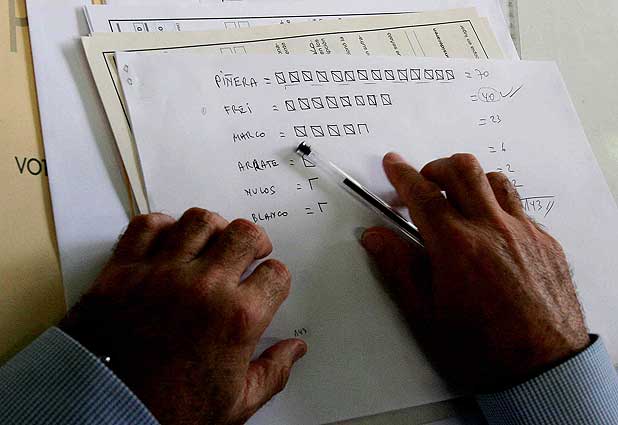 PIÑERA = = 70
FREI = = 40
MARCO = = 23
ARRATE = = 6
NULOS = = 2
BLANCO = 2
143
143
VOT